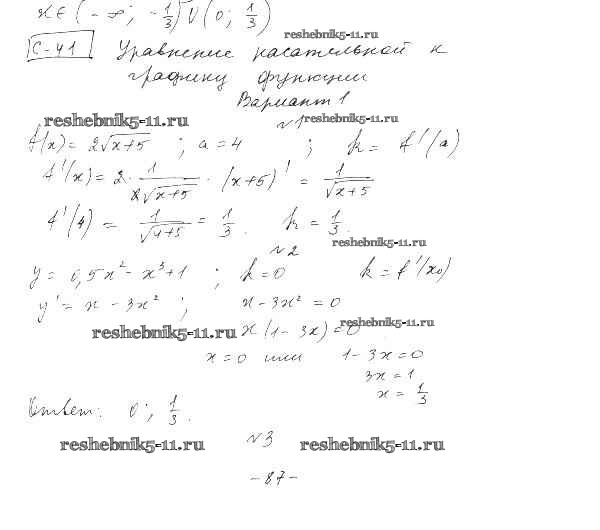 x ∈ (-∞; -1/3) ∪ (0; 1/3)
reshebnik5-11.ru
С-41 Уравнение касательной к
графику функции
Вариант 1
reshebnik5-11.ru
№1
reshebnik5-11.ru
f(x) = 2√(x+5) ; a = 4 ; k = f'(a)
f'(x) = 2 · 1/(2√(x+5)) · (x+5)' = 1/√(x+5)
f'(4) = 1/√(4+5) = 1/3. k = 1/3.
№2
reshebnik5-11.ru
y = 0,5x² - x³ + 1 ; k = 0 k = f'(x₀)
y' = x - 3x² ; x - 3x² = 0
reshebnik5-11.ru
x(1 - 3x) = 0
reshebnik5-11.ru
x = 0 или 1 - 3x = 0
3x = 1
x = 1/3
Ответ: 0; 1/3.
reshebnik5-11.ru
№3
reshebnik5-11.ru
- 87 -